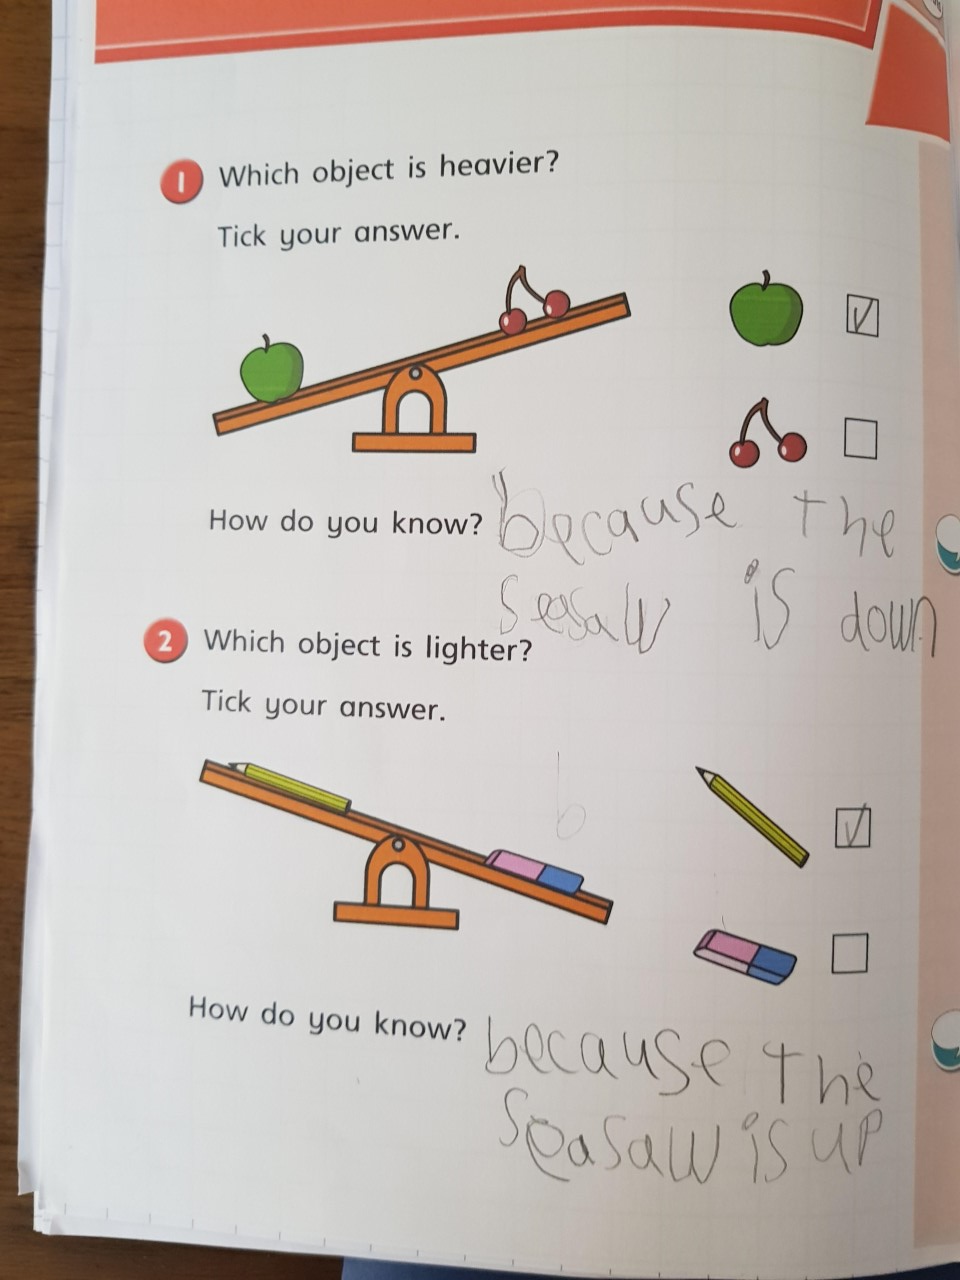 1 Which object is heavier?
Tick your answer.
How do you know? because the
seasaw is down
2 Which object is lighter?
Tick your answer.
b
How do you know? because the
seasaw is up